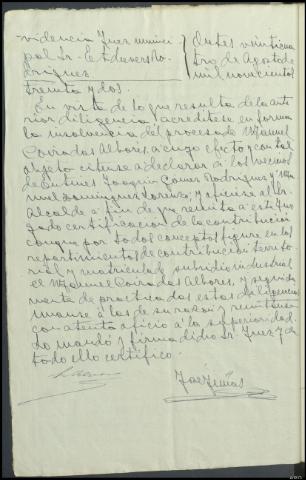 videncia Juez munici
pal Sr. Estevez Ro-
driguez
Outes veinticua
tro de Agosto de
mil novecientos
treinta y dos.
En vista de lo que resulta de la ante
rior diligencia acreditese en forma
la insolvencia del procesado Manuel
Coiradas Albores, a cuyo efecto y con tal
objeto citense a declarar á los vecinos
de Joaquin Gomez Rodriguez y Ma
nuel Dominguez Lorenzo, y oficiese al Sr.
Alcalde a fin de que remita a este Juz
gado certificacion de la contribucion
conque por todos conceptos figure en los
repartimientos de contribucion territo
rial y matricula de subsidio industrial
el Manuel Coiradas Albores, y seguida
mente de practicadas estas diligencias
unanse á las de su razon y remitanse
con atento oficio á la superioridad.
Lo mandó y firma dicho Sr. Juez y de
todo ello certifico.